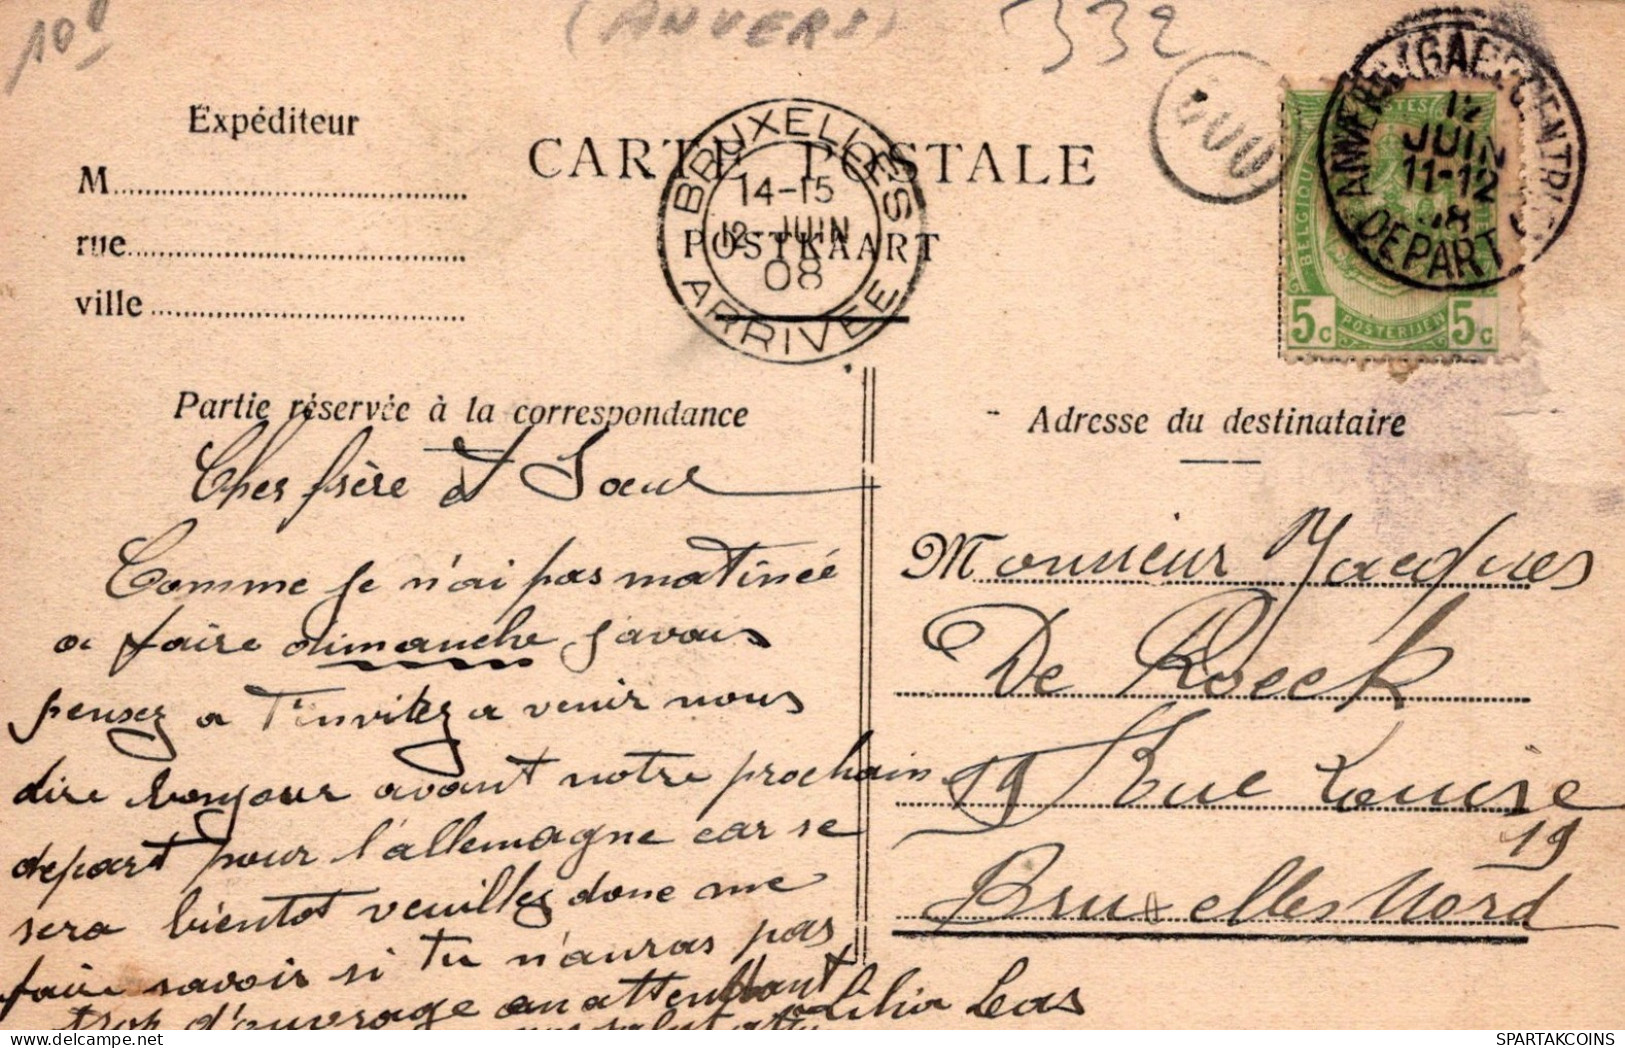 (ANVERS)
332
Expéditeur
M
rue
ville
CARTE POSTALE
POSTKAART
BRUXELLES
14-15
12-JUIN
08
ARRIVEE
ANVERS (GARE CENTRALE)
12
JUIN
11-12
08
DEPART
POSTES
BELGIQUE
5c POSTERIJEN 5c
Partie réservée à la correspondance
Adresse du destinataire
Cher frère et Soeur
Comme je n'ai pas matinée
a faire dimanche j'avais
pensez a t'invitez a venir nous
dire bonjour avant notre prochain
depart pour l'allemagne car se
sera bientot veuillez donc me
faire savoir si tu n'auras pas
trop d'ouvrage en attendant
Monsieur Jacques
De Roeck
19 Rue Louise
19
Bruxelles Nord
SPARTAKCOINS